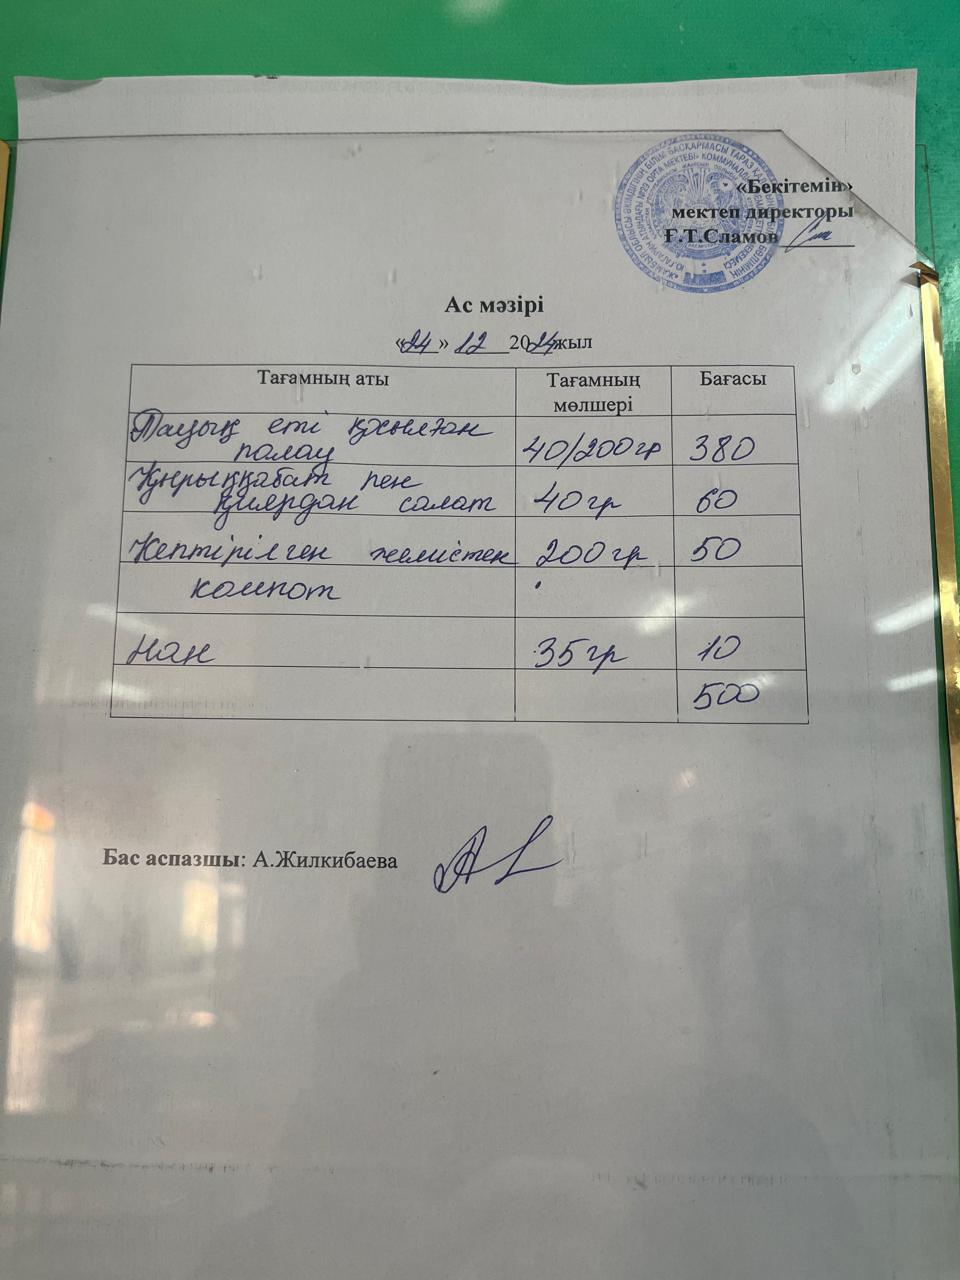 «Бекітемін»
мектеп директоры
Ғ.Т.Сламов
Ас мәзірі
«24» 12 2024жыл
Тағамның аты Тағамның мөлшері Бағасы
Тауық еті қосылған
палау 40/200гр 380
Қырыққабат пен
қиярдан салат 40гр 60
Кептірілген жемістен 200гр 50
компот
Нан 35гр 10
500
Бас аспазшы: А.Жилкибаева